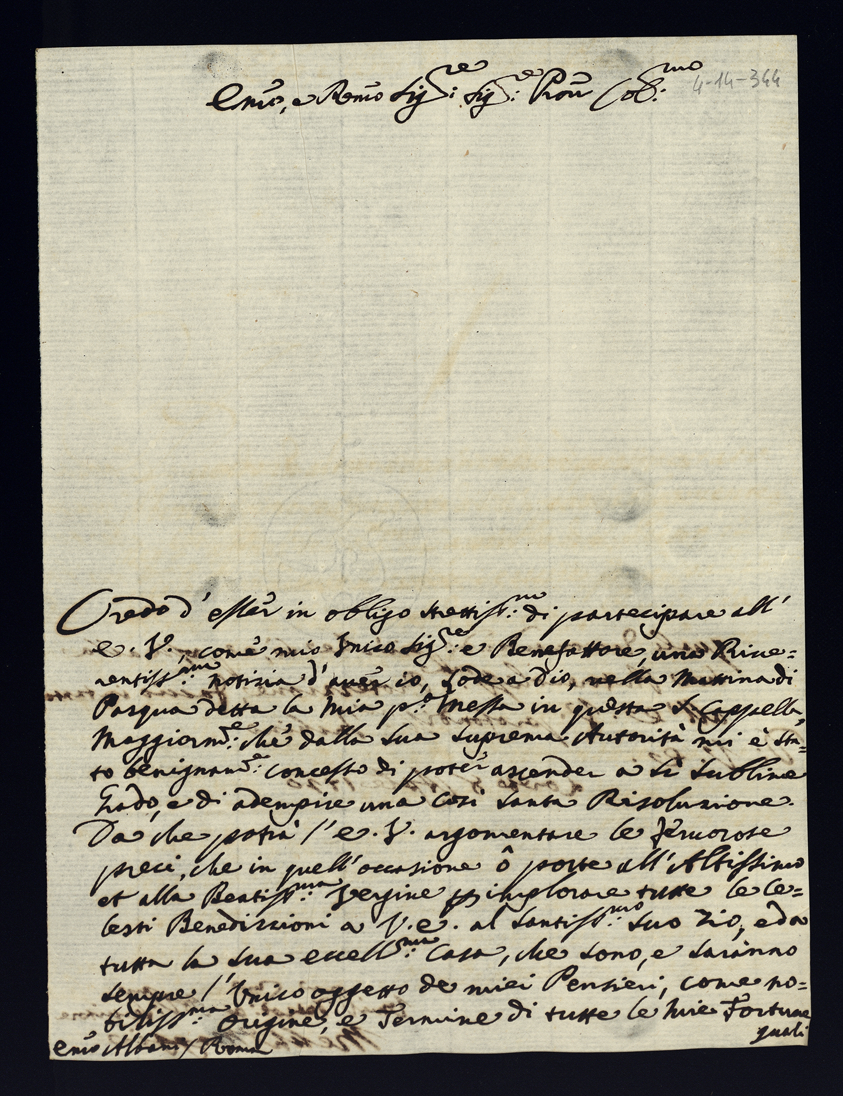 Em̃o, e Rem̃o Sig:re Sig:re Pron̄ Col:mo
4-14-344
Credo d'esser in obligo strettiss:mo di partecipare all'
E. V., come mio Unico Sig:re e Benefattore, una Rive=
rentiss:ma notizia d'aver io, Lode a Dio, nella Mattina di
Pasqua detta la mia p:a Messa in questa S. Cappella,
Maggiorm:e che dalla Sua Suprema Autorità mi è sta=
to benignam:e concesso di poter ascender a Sì Sublime
Grado, e di adempire una così Santa Risoluzione.
Da che potrà l'E. V. argomentare le fervorose
preci, che in quell'occasione ô porte all'Altissimo
et alla Beatiss:ma Vergine p implorare tutte le Ce=
lesti Benedizzioni a V. E. al Santiss:mo Suo Zio, e da
tutta la Sua Eccell:ma Casa, che Sono, e Saranno
Sempre l'Unico oggetto de miei Pensieri, come no=
biliss:ma Origine, e Termine di tutte le mie Fortune
quali
Em̃o Albani / Roma